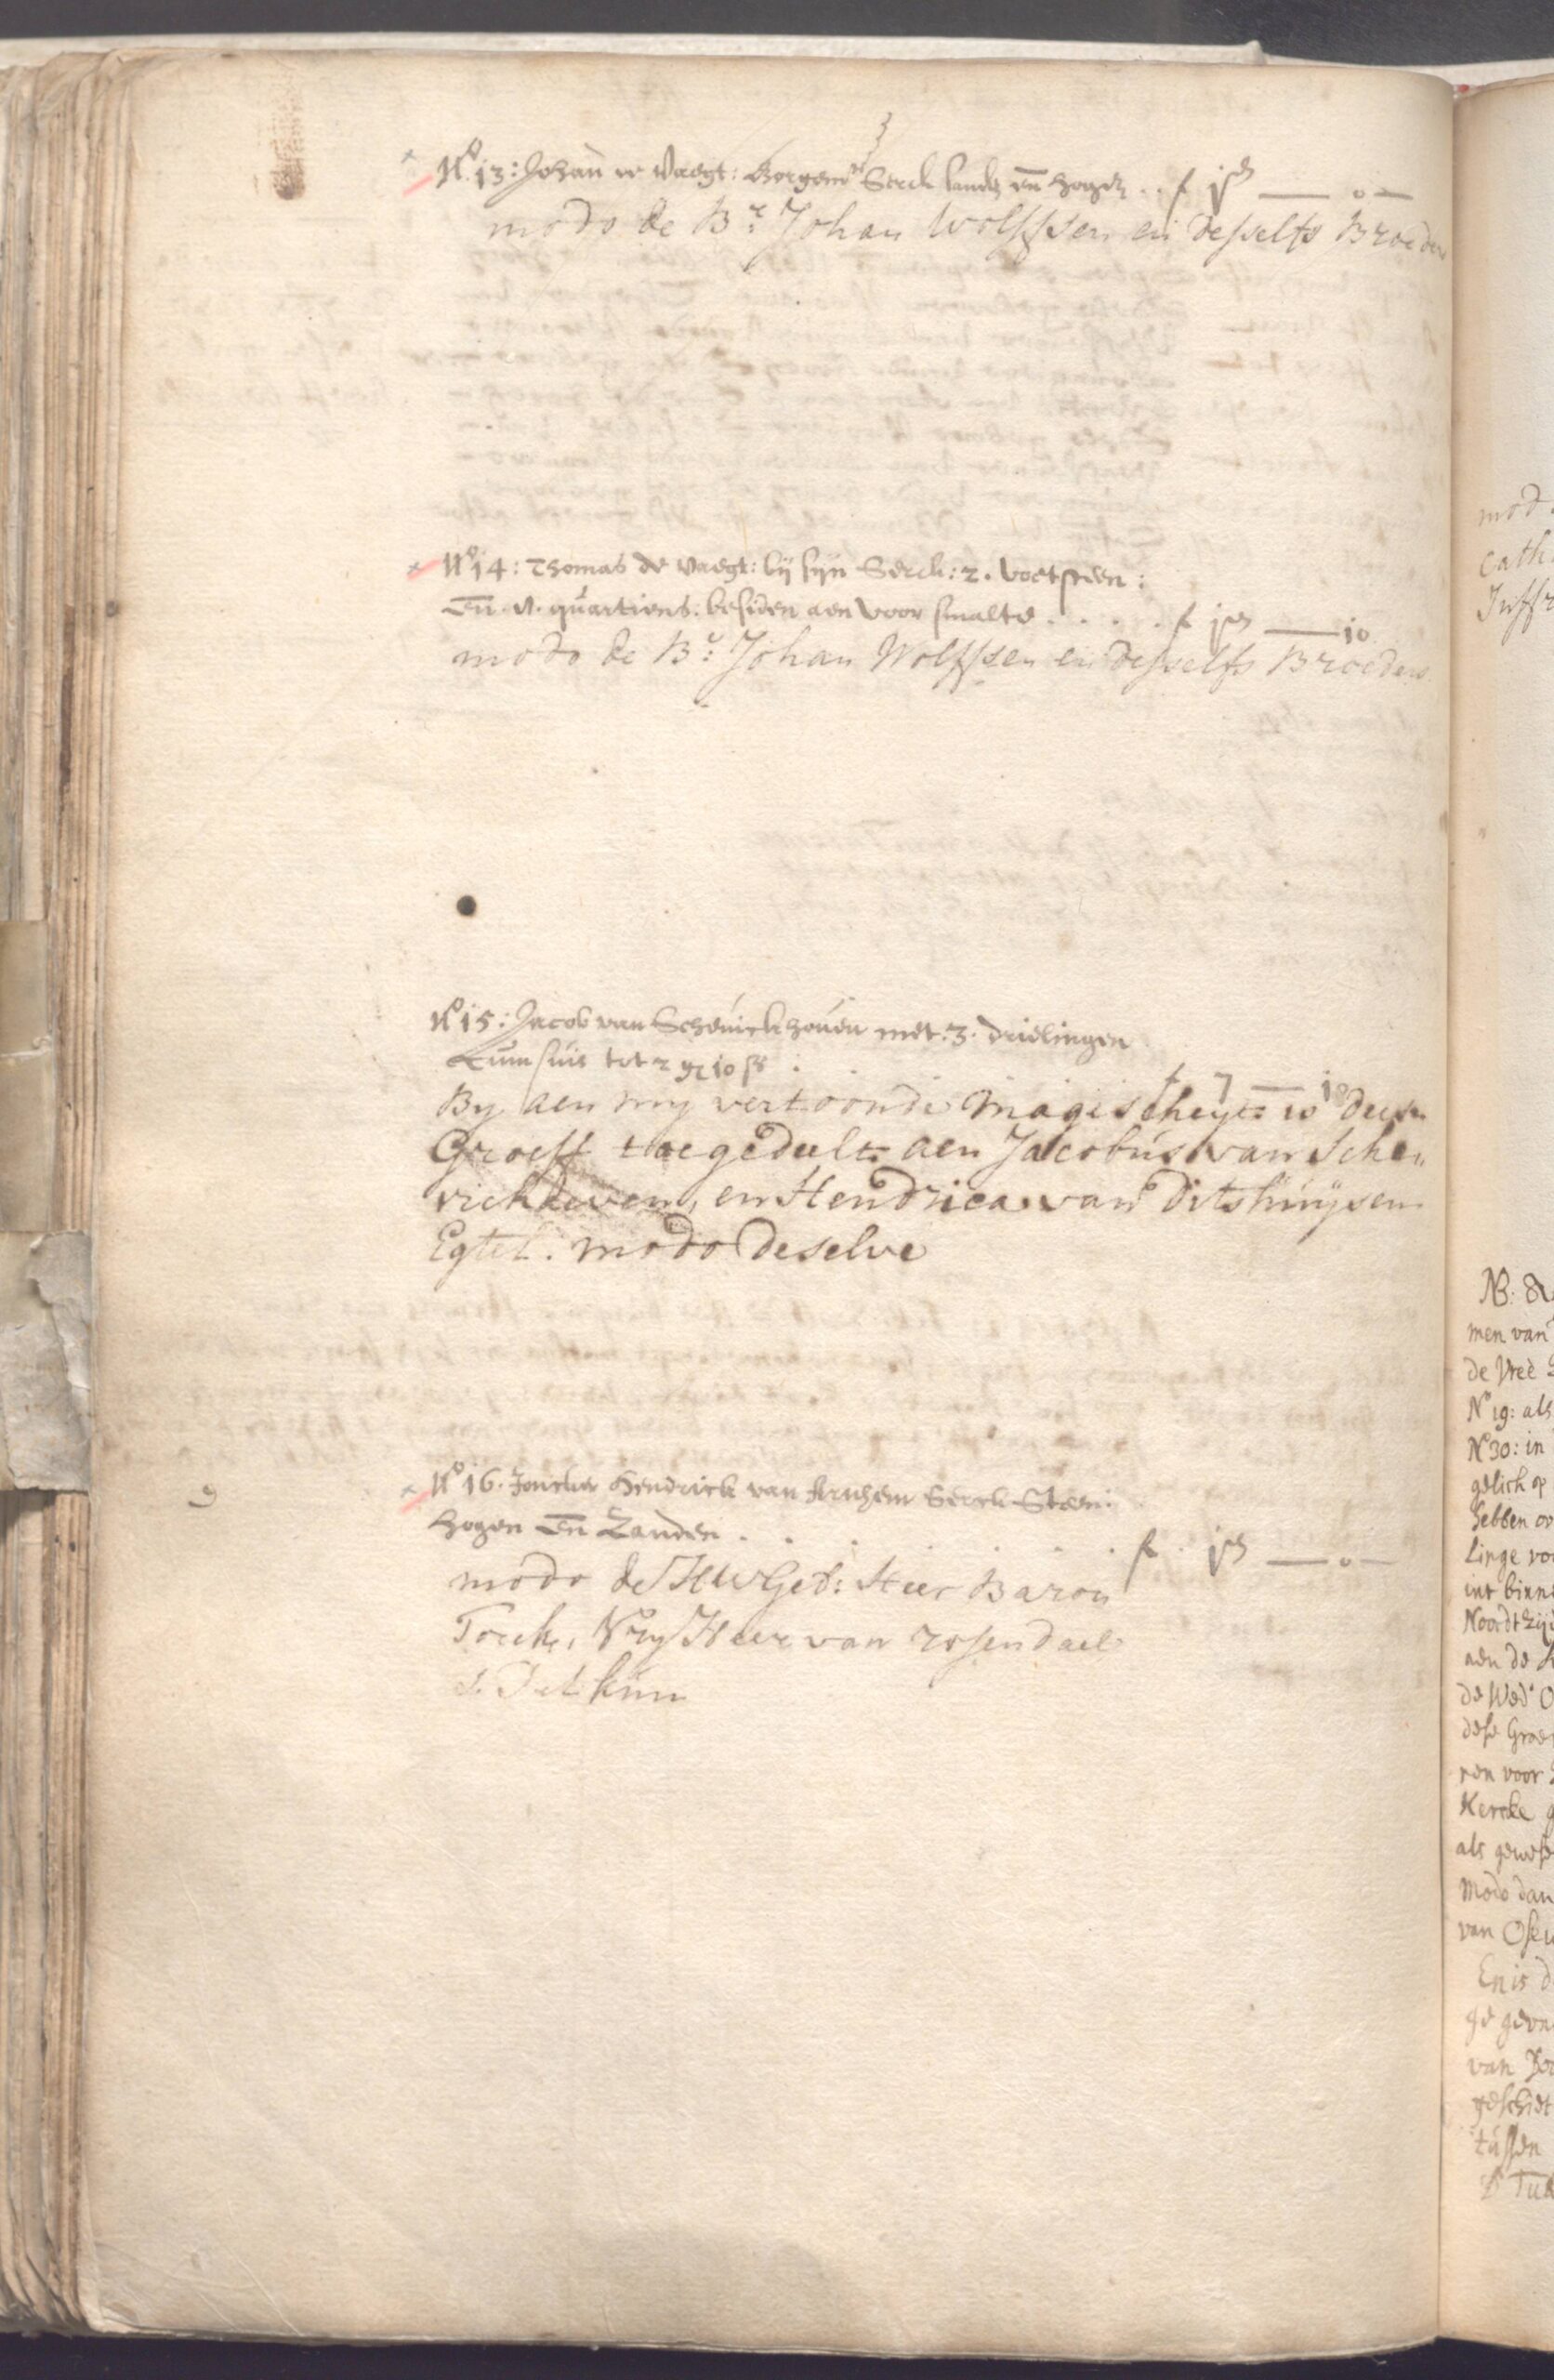 No 13: Johan de Vaegt: Borgemr Serck landz en̄ hogen .. f jß — o —
modo de Br: Johan Wolffsen en desselfs Broeders
No 14: Thomas de Vaegt: bij sijn Serck: 2. voetsteen:
En̄. v. quartiens: besiden aen voor smalte . . . . f jß — 10
modo de Br: Johan Wolffsen en desselfs Broeders
No 15: Jacob van Scheurickhouen met. 3. drielingen
Cum suis tot 7 gl 10 ß :
f 7 — 10
By aen my vertoonde magescheyt is dese
Groeff toegedeelt aen Jacobus van Scheu
rickhoven, en Hendrica van Ditshuysen
Egtel. modo deselve
No 16. Joncker Hendrick van Arnhem Serck Steen:
hogen En̄ Landen . . . . . f . jß — o —
modo de HWGeb: Heer Baron
Torck, Vry Heer van rosendael
mod.
Cath.
Juffr
NB:
men van
de Vree
No 19: als
No 30: in
gelick op
hebben
Linge
int binn
Noordtzij
aen de
de Wed.
dese Groe
ren voor
Kercke
als gewese
Modo dan
van
En is d
van
geschiet
tussen